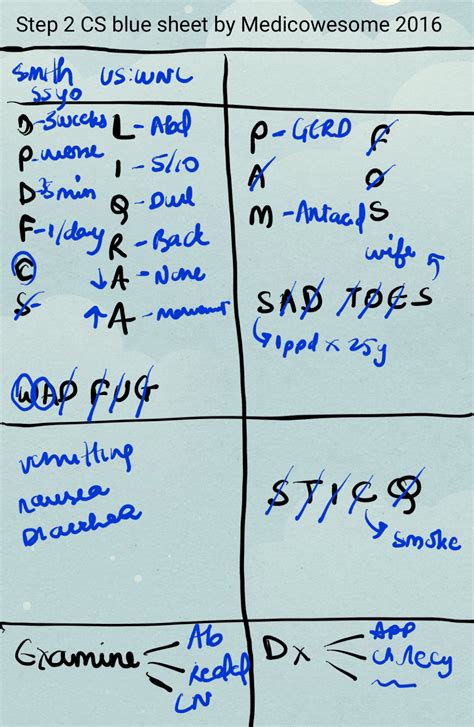 Step 2 CS blue sheet by Medicowesome 2016
Smith VS: WNL
55yo
D-3weeks L - Abd
P-worse I - 5/10
D-3min Q - Dull
F-1/day R - Back
C ↓A - None
S ↑A - movement
WAD FUG
P - GERD F
A O
M - Antacid S
wife
SAD TOES
1ppd x 25y
vomitting
nausea
Diarrhea
STIC Q
smoke
Examine Ab
Dx App